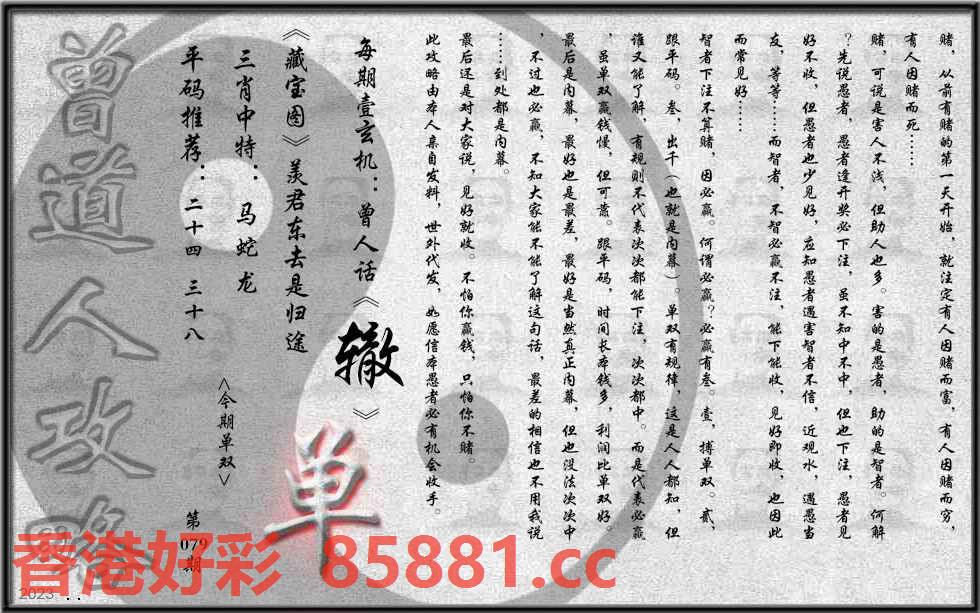 赌，从前有赌的第一天开始，就注定有人因赌而富，有人因赌而穷，
有人因赌而死……
赌，可说是害人不浅，但助人也多。害的是愚者，助的是智者。何解
？先说愚者，愚者逢开奖必下注，虽不知中不中，但也下注，愚者见
好不收，但愚者也少见好，应知愚者遇害智者不信，近观水，遇愚当
友，等等……而智者，不智必赢不注，能下能收，见好即收，也因此
而常见好……
智者下注不算赌，因必赢。何谓必赢？必赢有叁。壹，搏单双。贰，
跟平码。叁，出千（也就是内幕）。单双有规律，这是人人都知，但
谁又能了解，有规则不代表次次都能下注，次次都中。而是代表必赢
，虽单双赢钱慢，但可靠。跟平码，时间长本钱多，利润比单双好。
最后是内幕，最好也是最差，最好是当然真正内幕，但也没法次次中
，不过也必赢，不知大家能不能了解这句话，最差的相信也不用我说
……到处都是内幕。
最后还是对大家说，见好就收。不怕你赢钱，只怕你不赌。
此攻略由本人亲自发料，世外代发，如愿信本愚者必有机会收手。
每期壹玄机：曾人话《辙》
《藏宝图》羡君东去是归途
三肖中特：马蛇龙
平码推荐：二十四 三十八
<今期单双>
单
第079期
曾道人攻略
香港好彩 85881.cc
2023